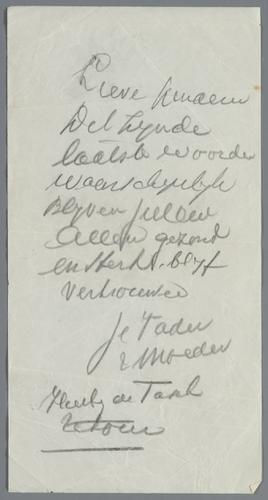 Lieve kinderen
Dit zijnde
laatste woorden
waarschijnlijk
Blijven jullie
Allen gezond
en sterk. blijf
Vertrouwen
Je Vader
& Moeder
de Tasch
Retour